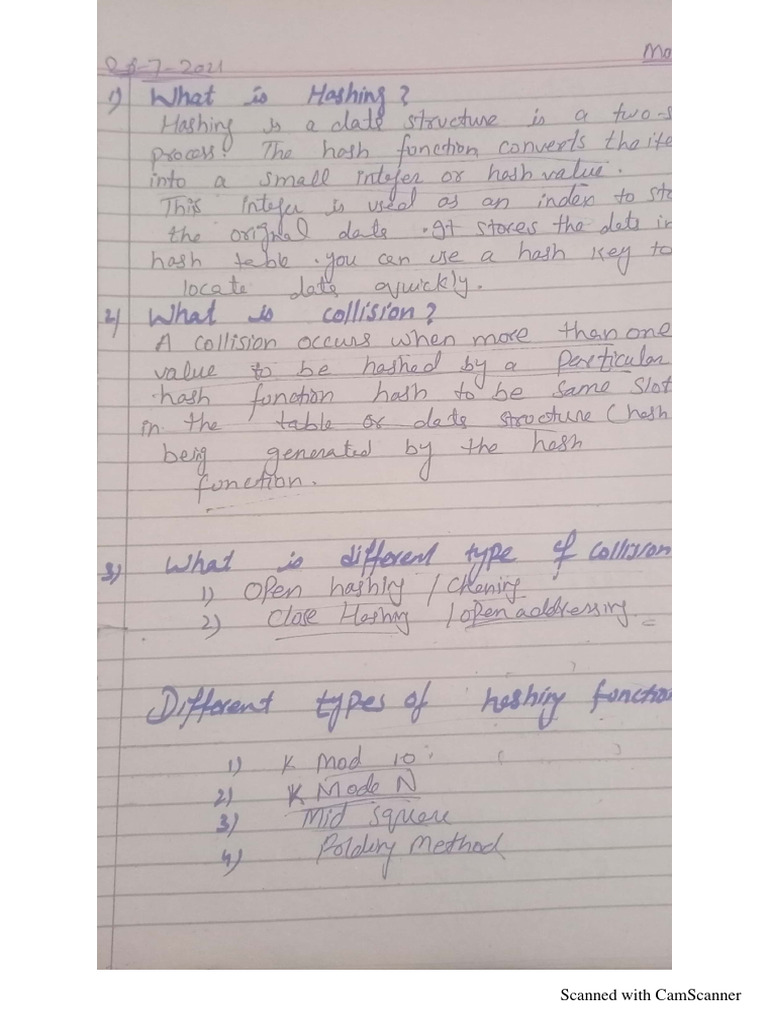 -7-2021
Mo
1) What is Hashing?
Hashing is a data structure is a two-s
process. The hash function converts the ite
into a small integer or hash value.
This integer is used as an index to sto
the original data. It stores the data in
hash table. you can use a hash key to
locate data quickly.
2) What is collision?
A collision occurs when more than one
value to be hashed by a perticular
hash function hash to be same slot
in the table or data structure (hash
beig generated by the hash
function.
3) What is different type of collision
1) Open hashing / Chening
2) Close Hashing / open addressing
Different types of hashing function
1) K mod 10
2) K Mode N
3) Mid square
4) Folding method
Scanned with CamScanner